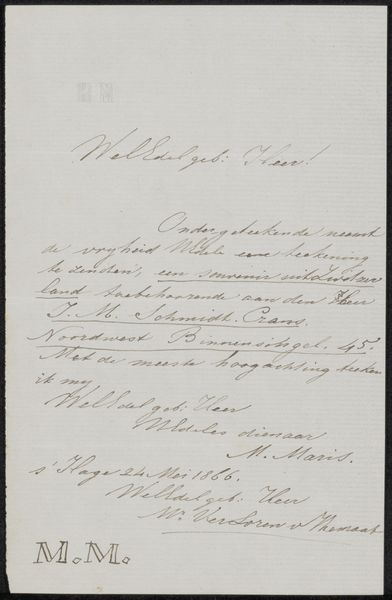 WelEdelgeb: Heer!
Ondergeteekende neemt
de vrijheid UEdele eene teekening
te zenden, een souvenir uit Zwitzer
land toebehoorende aan den Heer
J. M. Schmidt-Crans.
Noordwest Binnensingel. 45³
Met de meeste hoogachting teeken
ik mij
WelEdelgeb: Heer
UEdeles dienaar
M. Maris.
s'Hage 24 Mei 1866.
WelEdelgeb: Heer
Mr. VerLoren v Themaat
M.M.